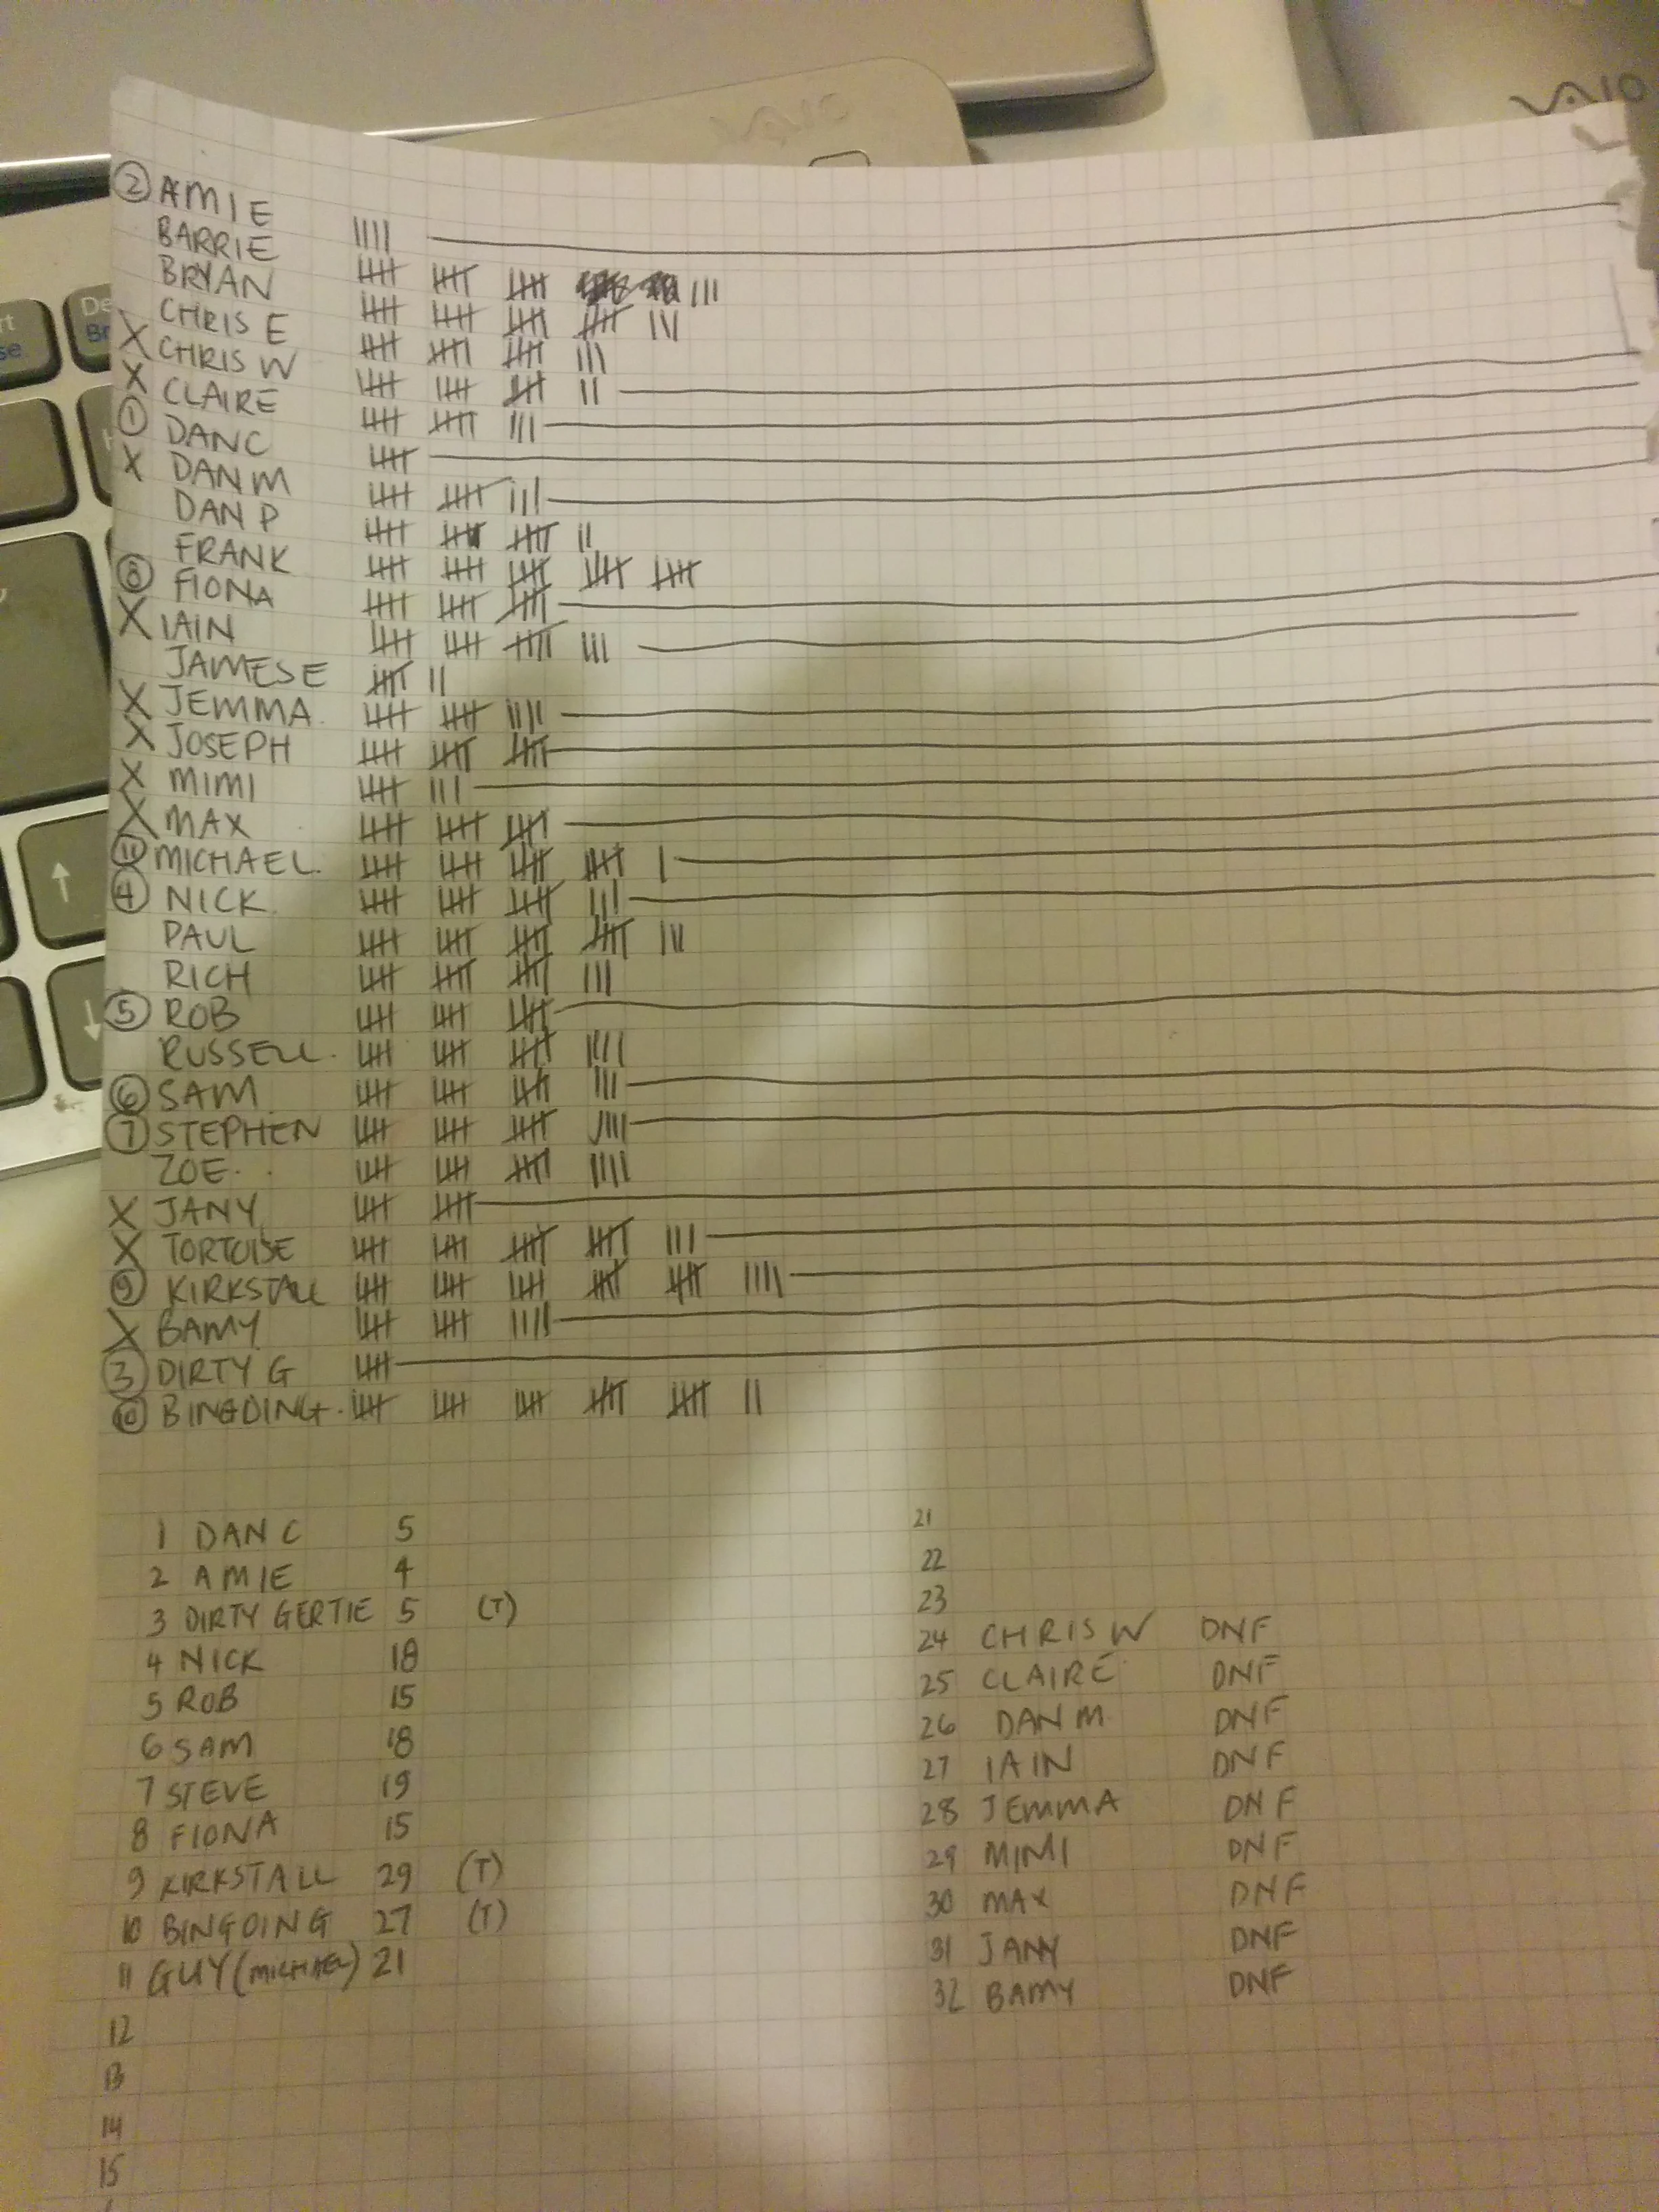 VAIO
VAIO
② AMIE IIII
BARRIE 卌 卌 卌 III
BRYAN 卌 卌 卌 卌 III
CHRIS E 卌 卌 卌 III
X CHRIS W 卌 卌 卌 II
X CLAIRE 卌 卌 III
① DAN C 卌
X DAN M 卌 卌 III
DAN P 卌 卌 卌 II
FRANK 卌 卌 卌 卌 卌
⑧ FIONA 卌 卌 卌
X IAIN 卌 卌 卌 III
JAMES E 卌 II
X JEMMA. 卌 卌 IIII
X JOSEPH 卌 卌 卌
X MIMI 卌 III
X MAX 卌 卌 卌
⑪ MICHAEL. 卌 卌 卌 卌 I
④ NICK. 卌 卌 卌 III
PAUL 卌 卌 卌 卌 III
RICH 卌 卌 卌 III
⑤ ROB 卌 卌 卌
RUSSELL. 卌 卌 卌 IIII
⑥ SAM 卌 卌 卌 III
⑦ STEPHEN 卌 卌 卌 IIII
ZOE. 卌 卌 卌 IIII
X JANY 卌 卌
X TORTOISE 卌 卌 卌 卌 III
⑨ KIRKSTALL 卌 卌 卌 卌 卌 IIII
X BAMY 卌 卌 IIII
③ DIRTY G 卌
⑩ BINGDING. 卌 卌 卌 卌 卌 II
1 DAN C 5
2 AMIE 4
3 DIRTY GERTIE 5 (T)
4 NICK 18
5 ROB 15
6 SAM 18
7 STEVE 19
8 FIONA 15
9 KIRKSTALL 29 (T)
10 BINGDING 27 (T)
11 GUY (MICHAEL) 21
12
13
14
15
21
22
23
24 CHRIS W DNF
25 CLAIRE DNF
26 DAN M DNF
27 IAIN DNF
28 JEMMA DNF
29 MIMI DNF
30 MAX DNF
31 JANY DNF
32 BAMY DNF